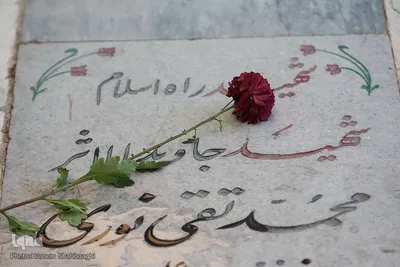 شهید راه اسلام
شهید جاوید الاثر
محمد تقی
iqna